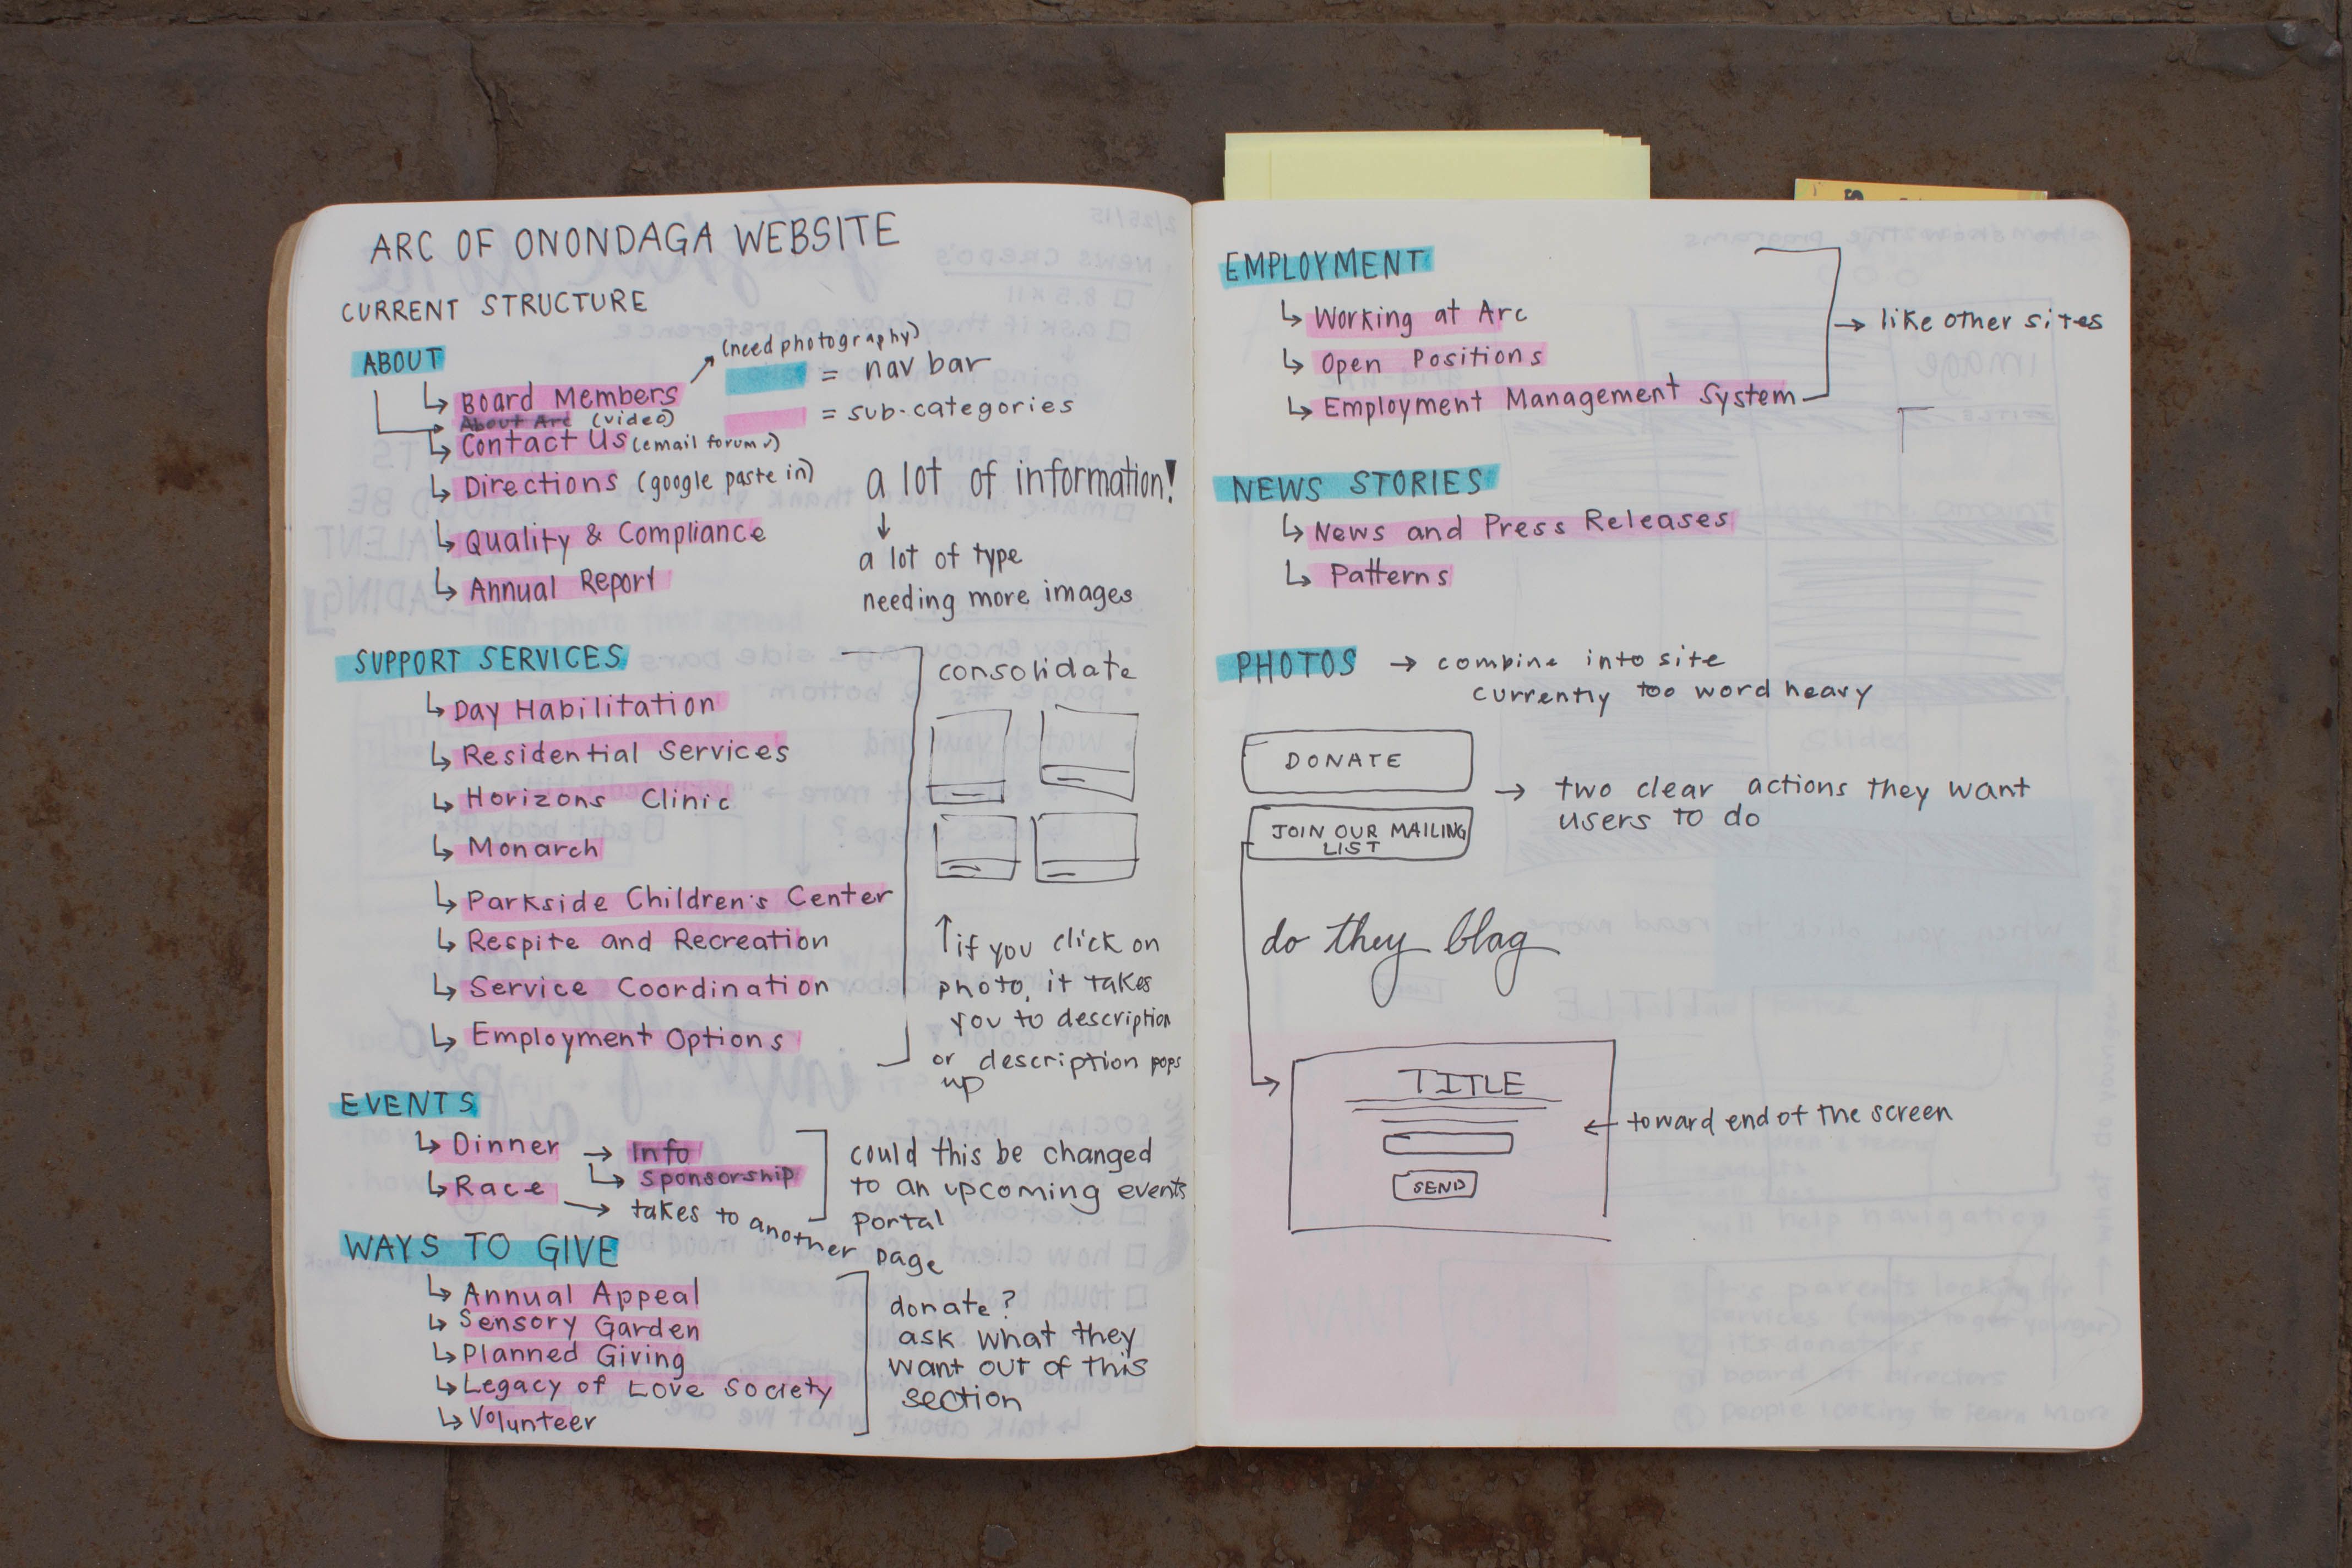 ARC OF ONONDAGA WEBSITE
CURRENT STRUCTURE
ABOUT
↳ Board Members
(need photography)
About Arc (video)
↳ Contact Us (email forum ✓)
↳ Directions (google paste in)
↳ Quality & Compliance
↳ Annual Report
= nav bar
= sub-categories
a lot of information!
↓
a lot of type
needing more images
SUPPORT SERVICES
↳ Day Habilitation
↳ Residential Services
↳ Horizons Clinic
↳ Monarch
↳ Parkside Children's Center
↳ Respite and Recreation
↳ Service Coordination
↳ Employment Options
consolidate
↑ if you click on
photo, it takes
you to description
or description pops
up
EVENTS
↳ Dinner → Info
↳ Sponsorship
↳ Race → takes to another page
could this be changed
to an upcoming events
portal
WAYS TO GIVE
↳ Annual Appeal
↳ Sensory Garden
↳ Planned Giving
↳ Legacy of Love Society
↳ Volunteer
donate?
ask what they
want out of this
section
EMPLOYMENT
↳ Working at Arc
↳ Open Positions
↳ Employment Management System
→ like other sites
NEWS STORIES
↳ News and Press Releases
↳ Patterns
PHOTOS → combine into site
currently too word heavy
DONATE
JOIN OUR MAILING
LIST
→ two clear actions they want
users to do
do they blog
TITLE
SEND
← toward end of the screen